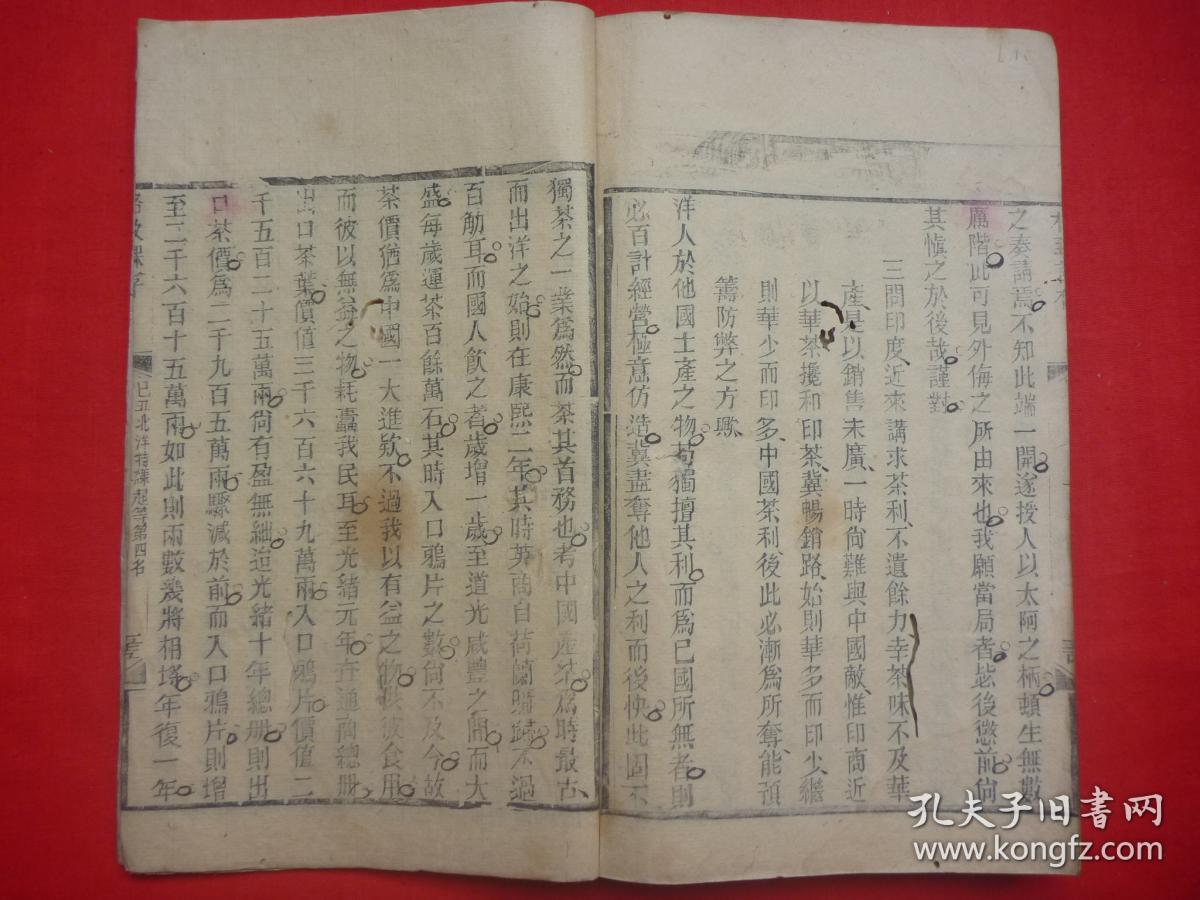 之奏請焉不知此端一開遂授人以太阿之柄頓生無數
厲階此可見外侮之所由來也我願當局者毖後懲前尚
其愼之於後哉謹對
三問印度近來講求茶利不遺餘力幸茶味不及華
產是以銷售未廣一時尙難與中國敵惟印商近
以華茶攙和印茶冀暢銷路始則華多而印少繼
則華少而印多中國茶利後此必漸爲所奪能預
籌防弊之方歟
洋人於他國土產之物苟獨擅其利而爲己國所無者則
必百計經營極意仿造冀盡奪他人之利而後快此固不
獨茶之一業爲然而茶其首務也考中國產茶爲時最古
而出洋之始則在康熙二年其時英商自荷蘭購歸不過
百觔耳而國人飲之者歲增一歲至道光咸豐之間而大
盛每歲運茶百餘萬石其時入口鴉片之數尙不及今故
茶價猶爲中國一大進欵不過我以有益之物供彼食用
而彼以無益之物耗蠹我民耳至光緒元年查通商總册
出口茶葉價值三千六百六十九萬兩入口鴉片價值二
千五百二十五萬兩尙有盈無絀迨光緒十年總册則出
口茶價爲二千九百五萬兩驟減於前而入口鴉片則增
至二千六百十五萬兩如此則兩數幾將相埓年復一年
格致課存
己丑北洋特課超等第四名
孔夫子旧书网
www.kongfz.com